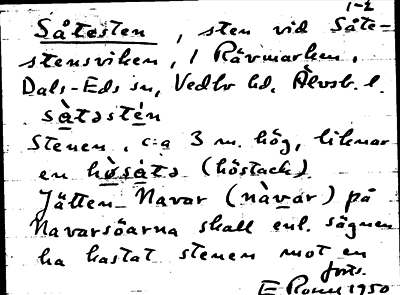 1-2
Såtesten, sten vid Såte-
stensviken, i Rävmarken,
Dals-Eds sn, Vedbo hd, Älvsb. l.
sàtəstén
Stenen, c:a 3 m. hög, liknar
en hø̀sátə (höstack).
Jätten Navar (nàvar) på
Navarsöarna skall enl. sägnen
ha kastat stenen mot en
forts.
E 1950